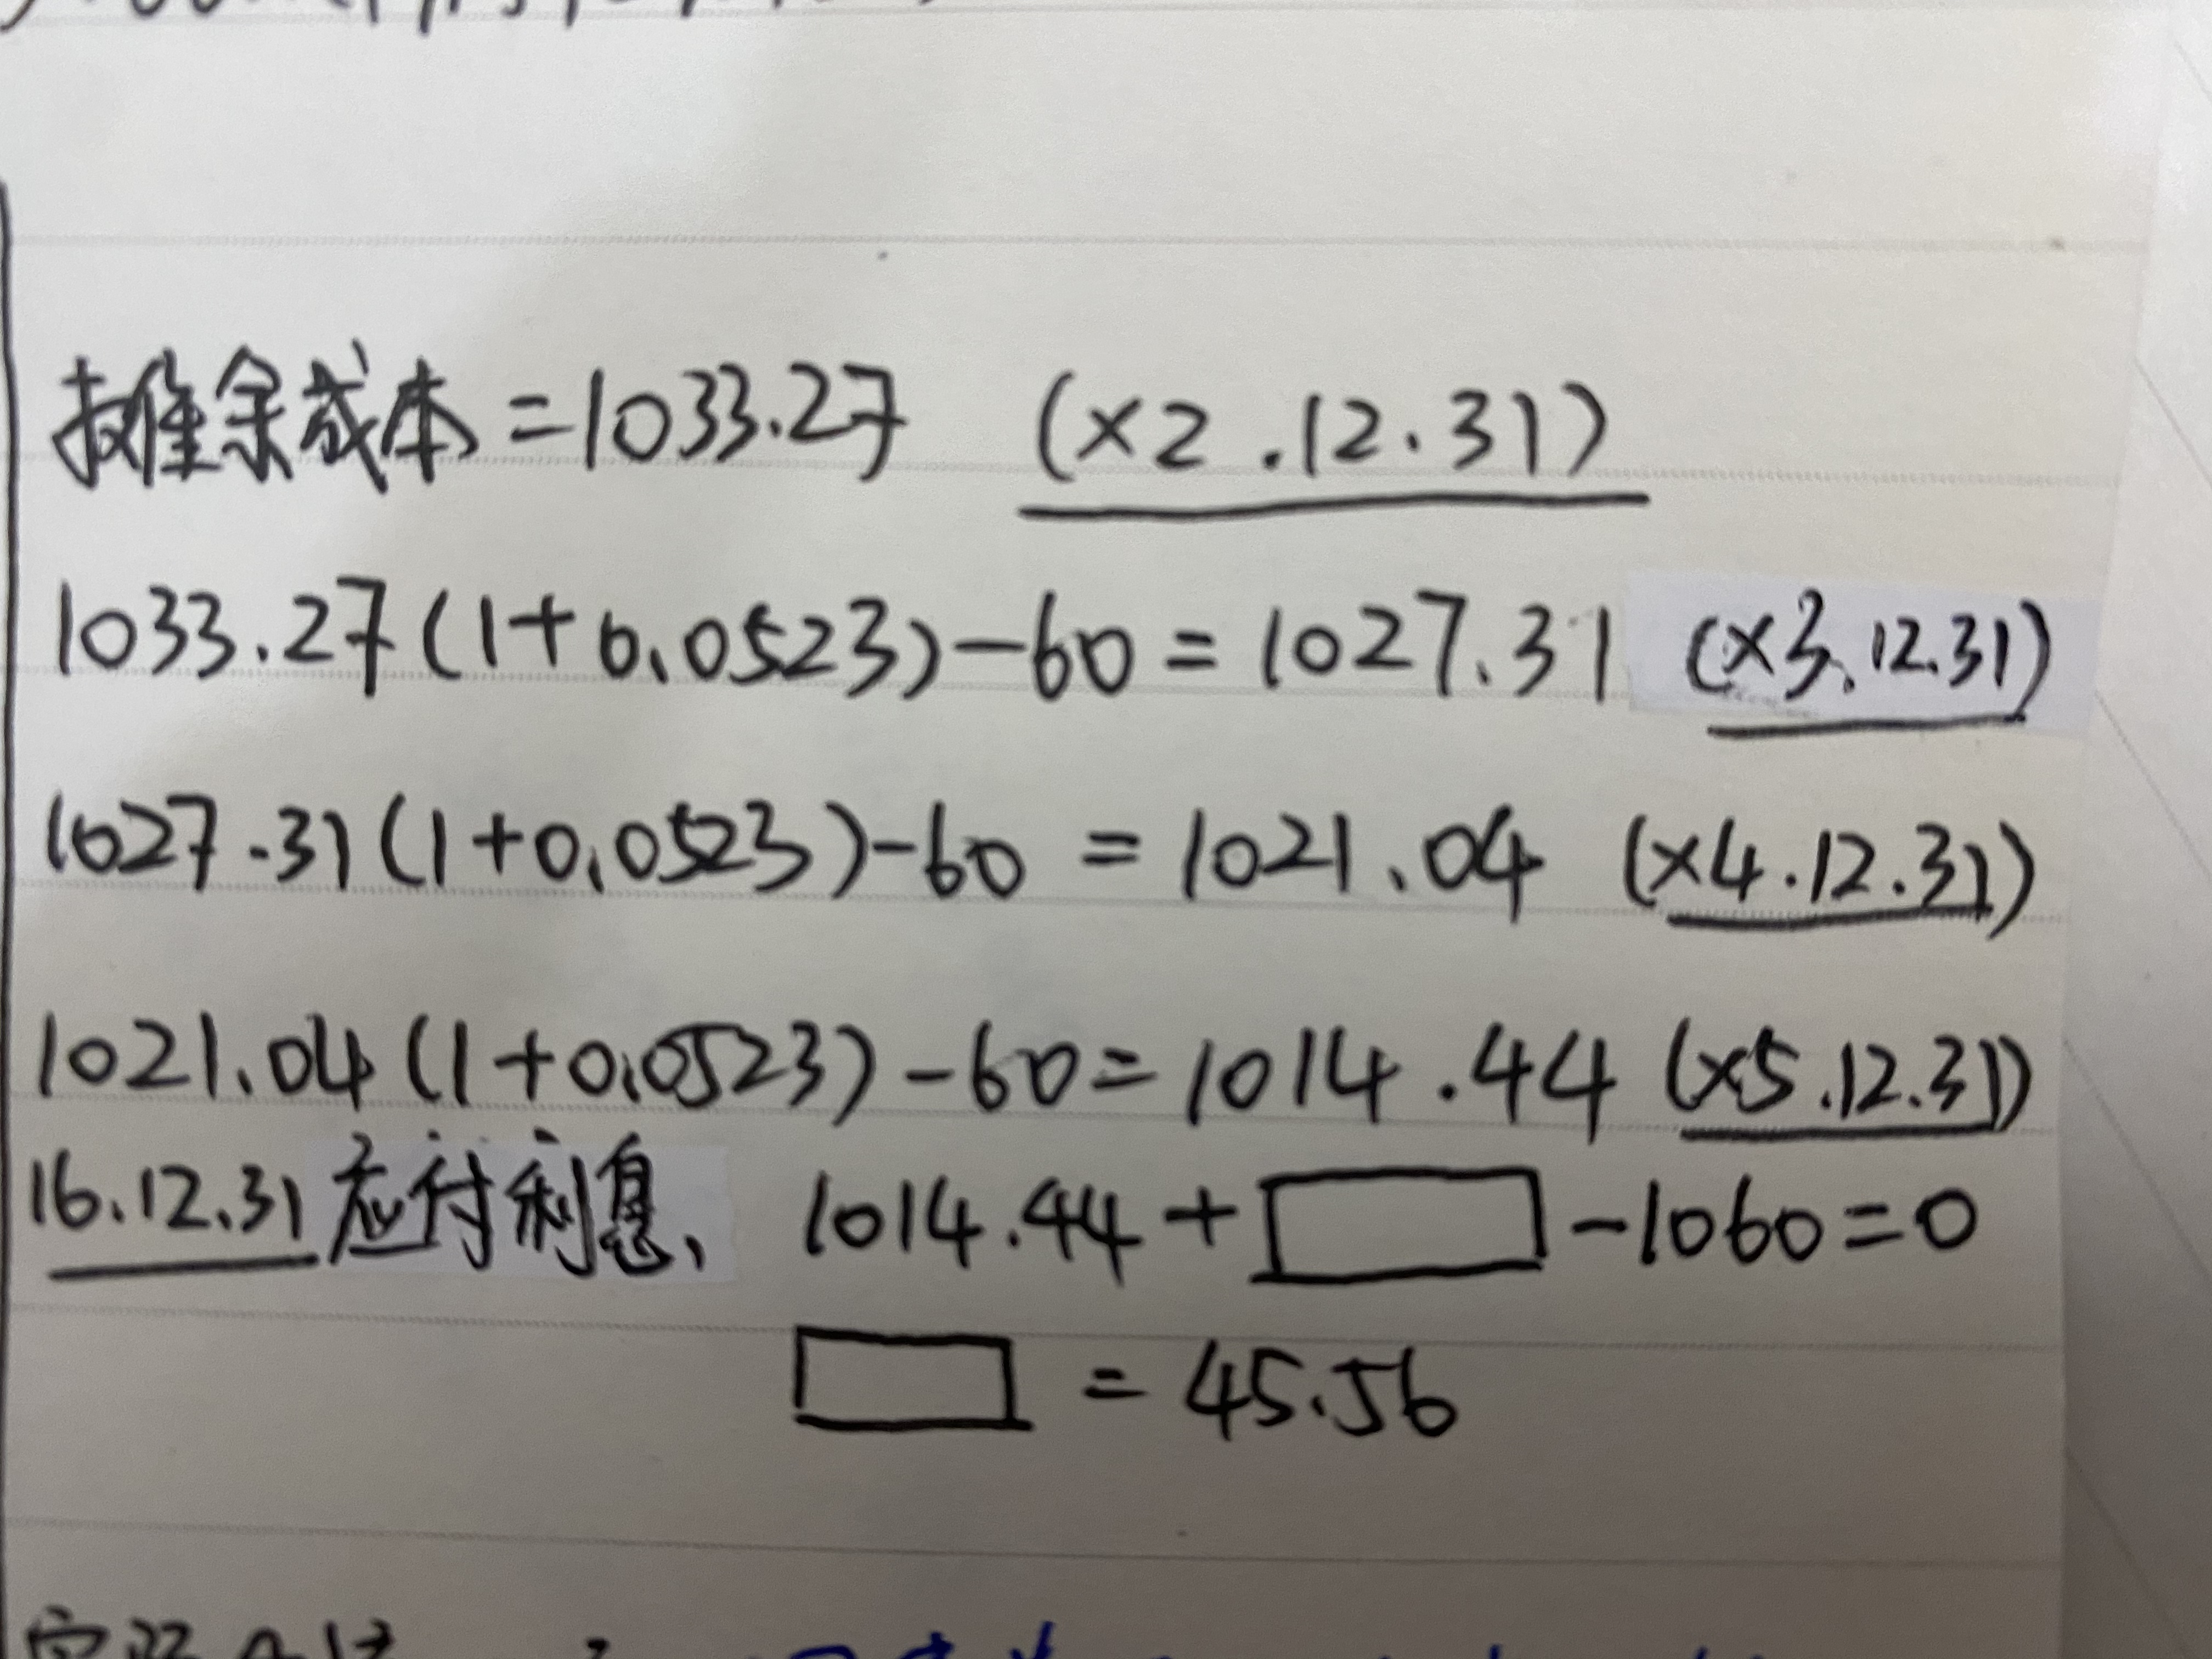 摊余成本=1033.27 (x2.12.31)
1033.27(1+0.0523)-60=1027.31 (x3.12.31)
1027.31(1+0.0523)-60=1021.04 (x4.12.31)
1021.04(1+0.0523)-60=1014.44 (x5.12.31)
16.12.31应付利息, 1014.44+□-1060=0
□=45.56